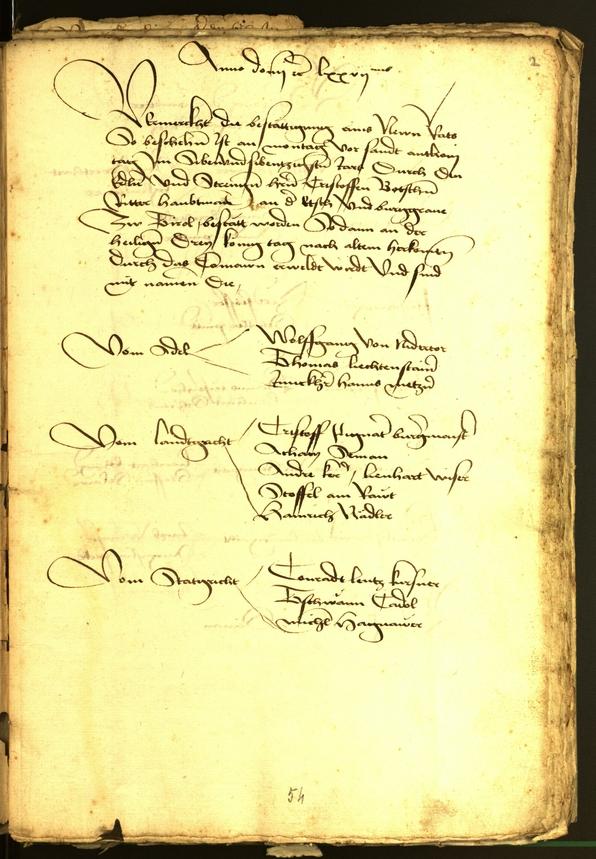 2
Anno domini etc lxxvii mo
Vermerckht die bestättigung ains Newn Rats
So beschehn ist an montag vor sandt anthoni
tag Im Sibenundsibentzigisten Jare Durch den
Edln und Strenngn hern Cristoffen Botschn
Ritter haubtman an d Etsch und burggraue
Zw Tirol bestätt worden So dann an der
heilign Dreyr konig tag nach altem herkomen
durch das Comawn erwelt wordn Und sind
mit namen Die
Vom Adel
Wolffgang von Nidertor
Thomas liechtenstain
Junckher hanns metzn
Vom landtgericht
Cristoff burgermaist
Acham
Andre / lienhart wiser
Stoffel am Rawt
Hainrich Nadler
Vom Statgericht
Conradt lentz kursner
Tschwann Cadol
michl Hagnawer
54